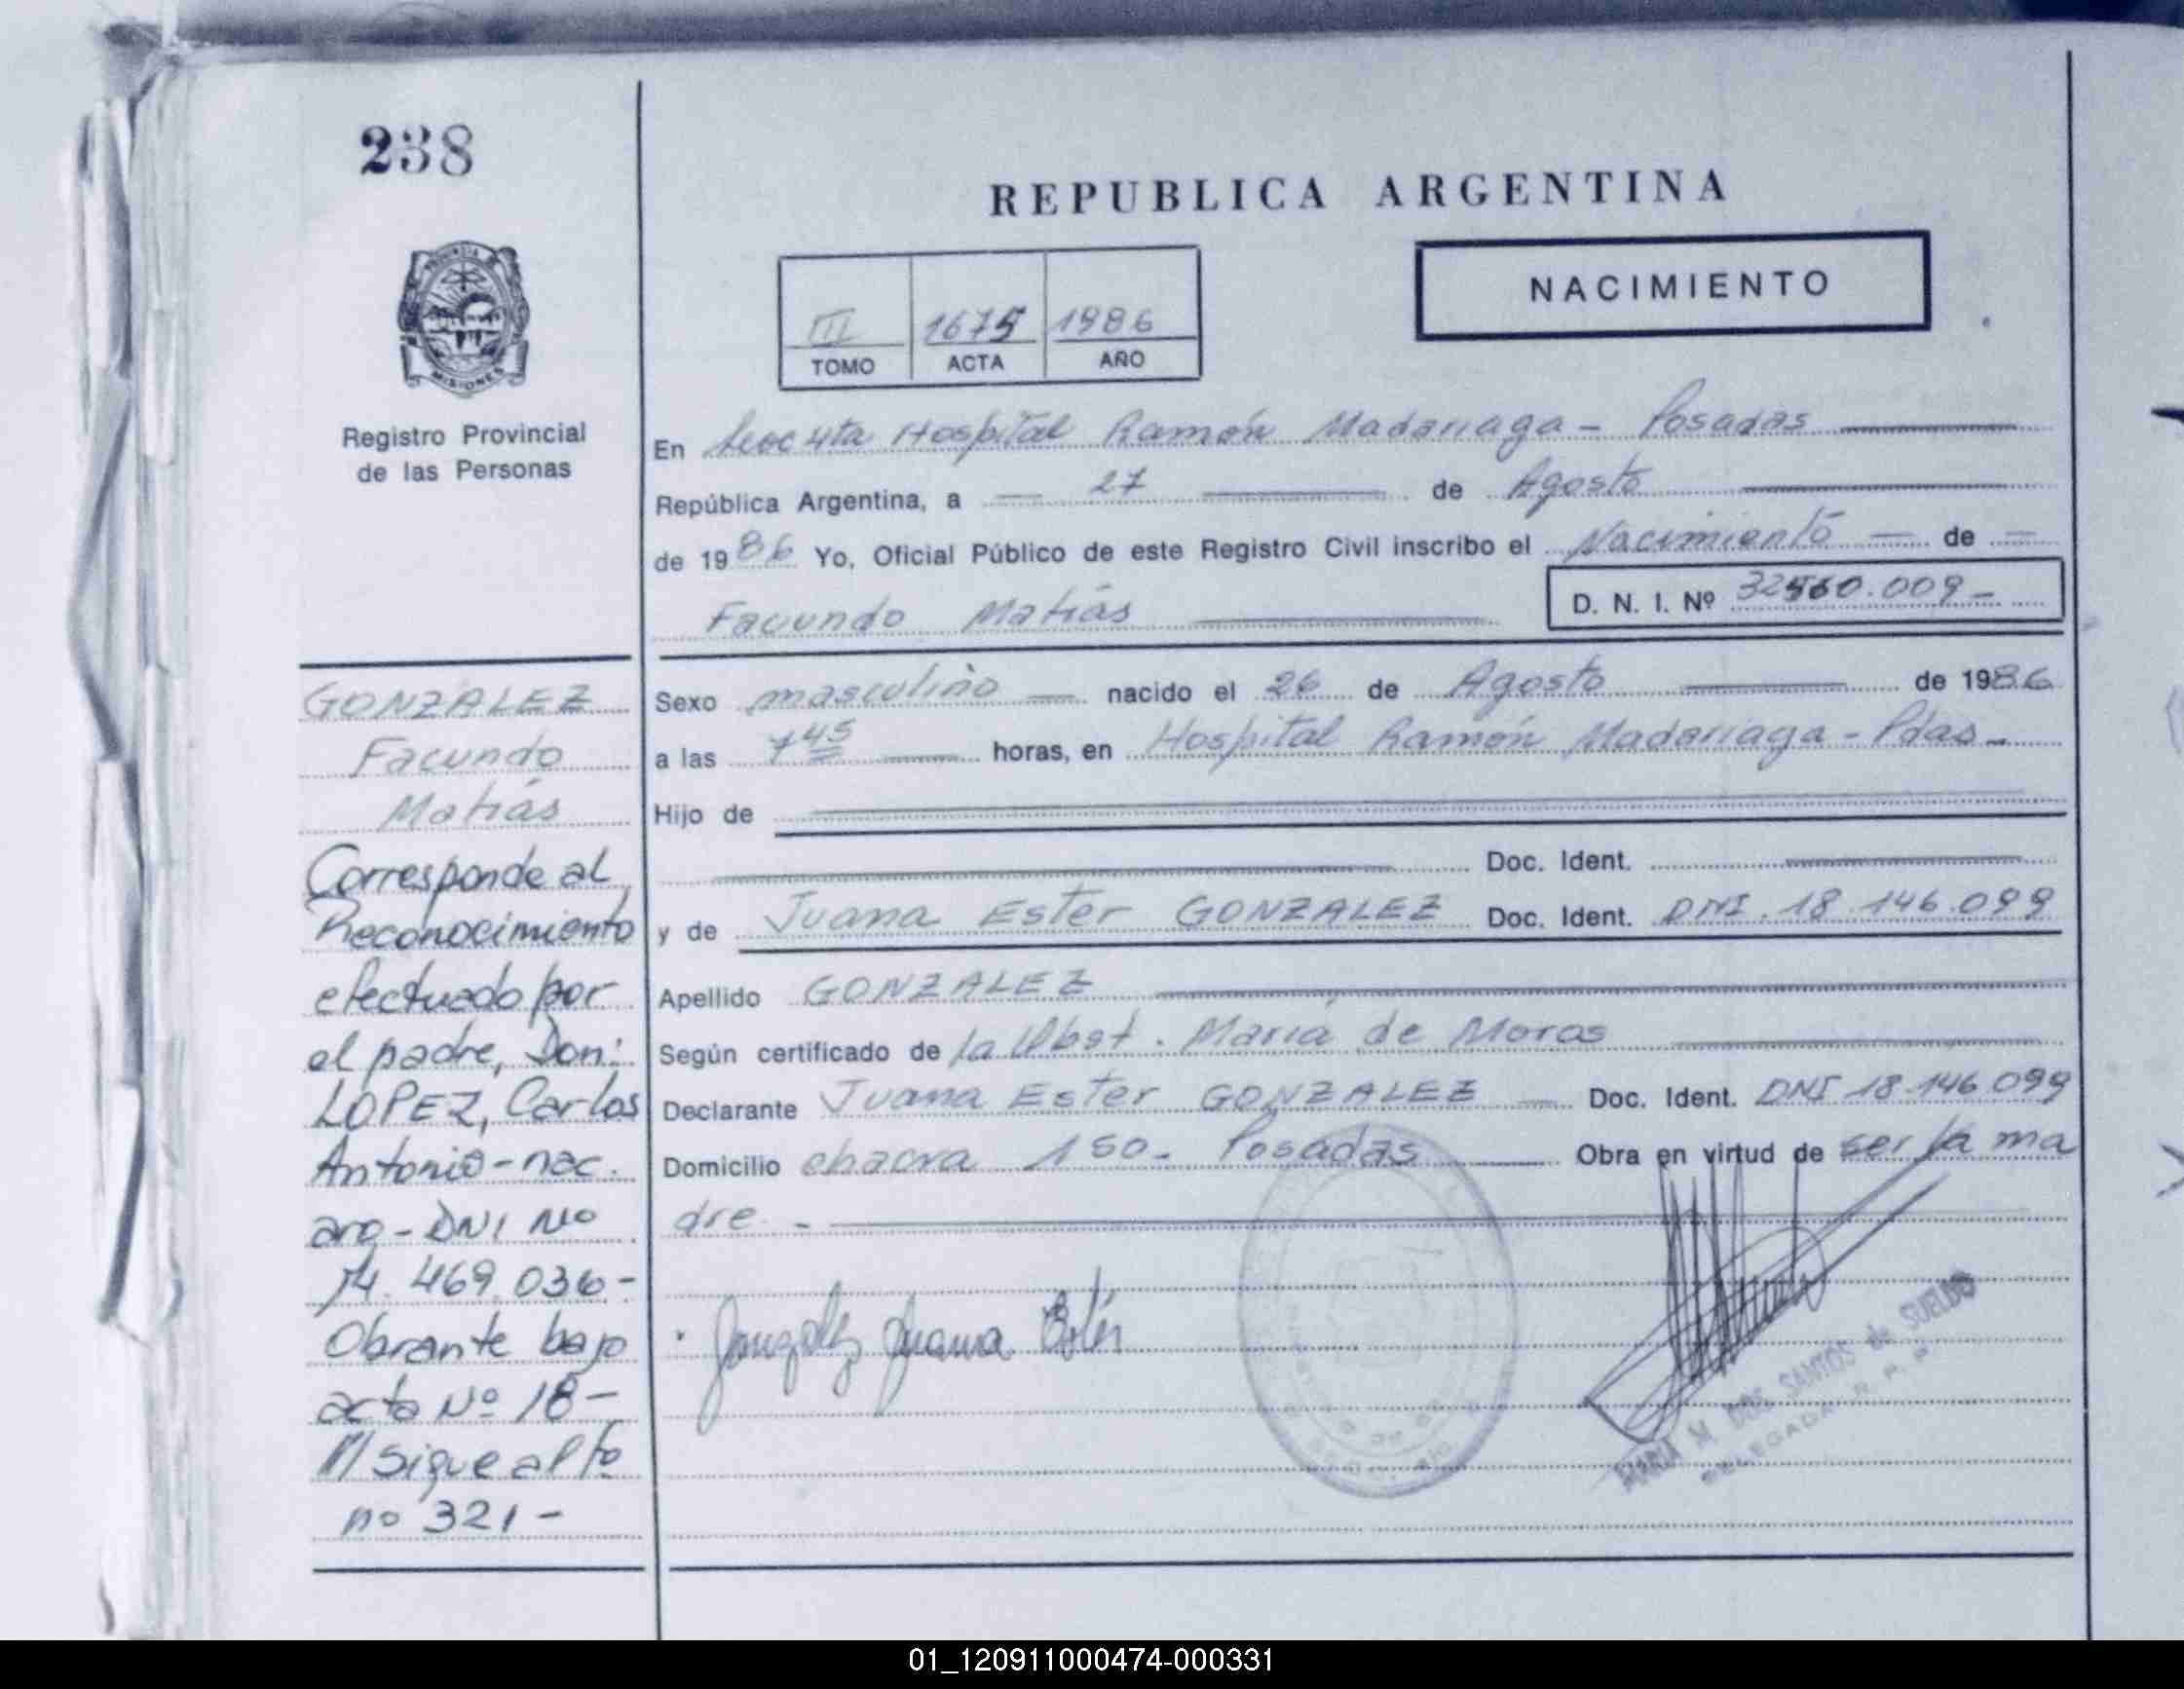 238
REPUBLICA ARGENTINA
NACIMIENTO
III 1675 1986
TOMO ACTA AÑO
PROVINCIA DE
MISIONES
Registro Provincial
de las Personas
En Secc 4ta Hospital Ramón Madariaga - Posadas
República Argentina, a 27 de Agosto
de 1986 Yo, Oficial Público de este Registro Civil inscribo el Nacimiento de
Facundo Matias D. N. I. Nº 32560.009-
Sexo masculino nacido el 26 de Agosto de 1986
a las 7 45 horas, en Hospital Ramón Madariaga - Pdas-
Hijo de
Doc. Ident.
y de Juana Ester GONZALEZ Doc. Ident. DNI. 18.146.099
Apellido GONZALEZ
Según certificado de la Obst. María de Moras
Declarante Juana Ester GONZALEZ Doc. Ident. DNI 18.146.099
Domicilio chacra 150- Posadas Obra en virtud de ser la ma
dre -
Gonzalez Juana Ester
MARIA M. DOS SANTOS de SUELDO
DELEGADA R. P. P.
GONZALEZ
Facundo
Matiás
Corresponde al
Reconocimiento
efectuado por
el padre, Don:
LOPEZ, Carlos
Antonio - nac.
arg - DNI Nº
14. 469. 036 -
Obrante bajo
acta Nº 18 -
M/ sigue al fº
nº 321 -
01_120911000474-000331